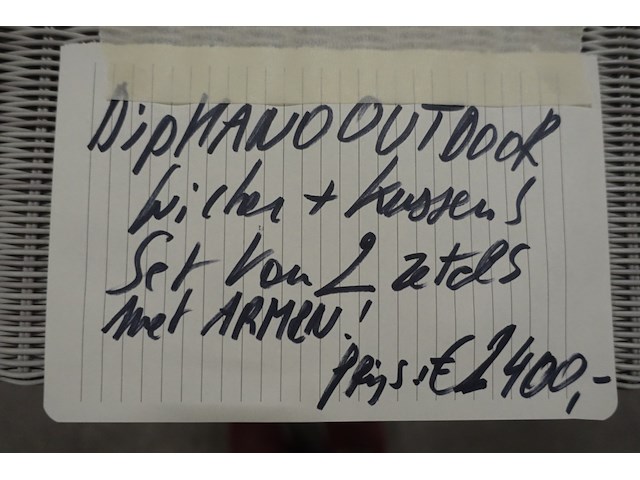 DipMANO OUTDOOR
Wicker + kussens
Set van 2 zetels
met ARMEN!
Prijs: € 2400,-